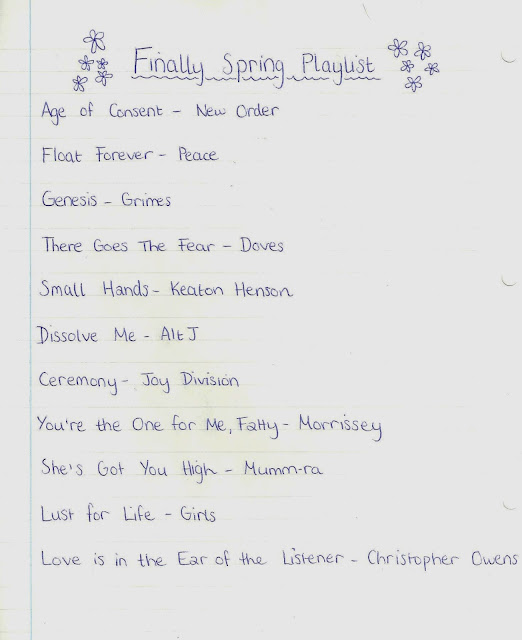 Finally Spring Playlist
Age of Consent - New Order
Float Forever - Peace
Genesis - Grimes
There Goes The Fear - Doves
Small Hands - Keaton Henson
Dissolve Me - Alt J
Ceremony - Joy Division
You're the One for Me, Fatty - Morrissey
She's Got You High - Mumm-ra
Lust for Life - Girls
Love is in the Ear of the Listener - Christopher Owens